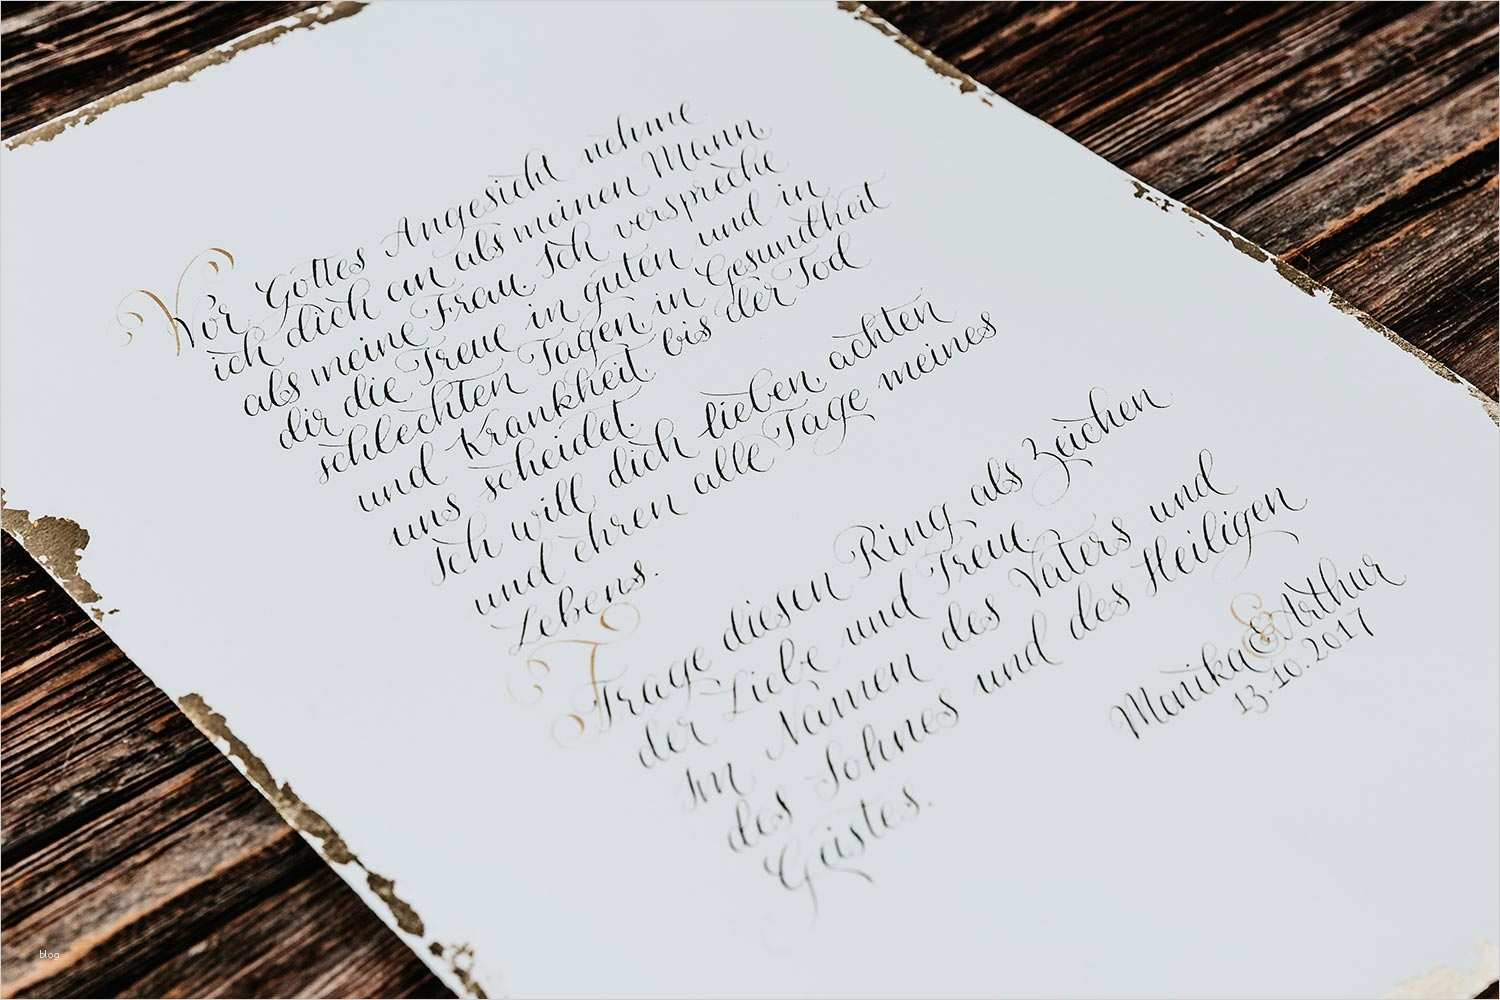 Vor Gottes Angesicht nehme
ich dich an als meinen Mann,
als meine Frau. Ich verspreche
dir die Treue in guten und in
schlechten Tagen, in Gesundheit
und Krankheit, bis der Tod
uns scheidet.
Ich will dich lieben, achten
und ehren alle Tage meines
Lebens.
Trage diesen Ring als Zeichen
der Liebe und Treue.
Im Namen des Vaters und
des Sohnes und des Heiligen
Geistes.
Monika & Arthur
13.10.2017
blog